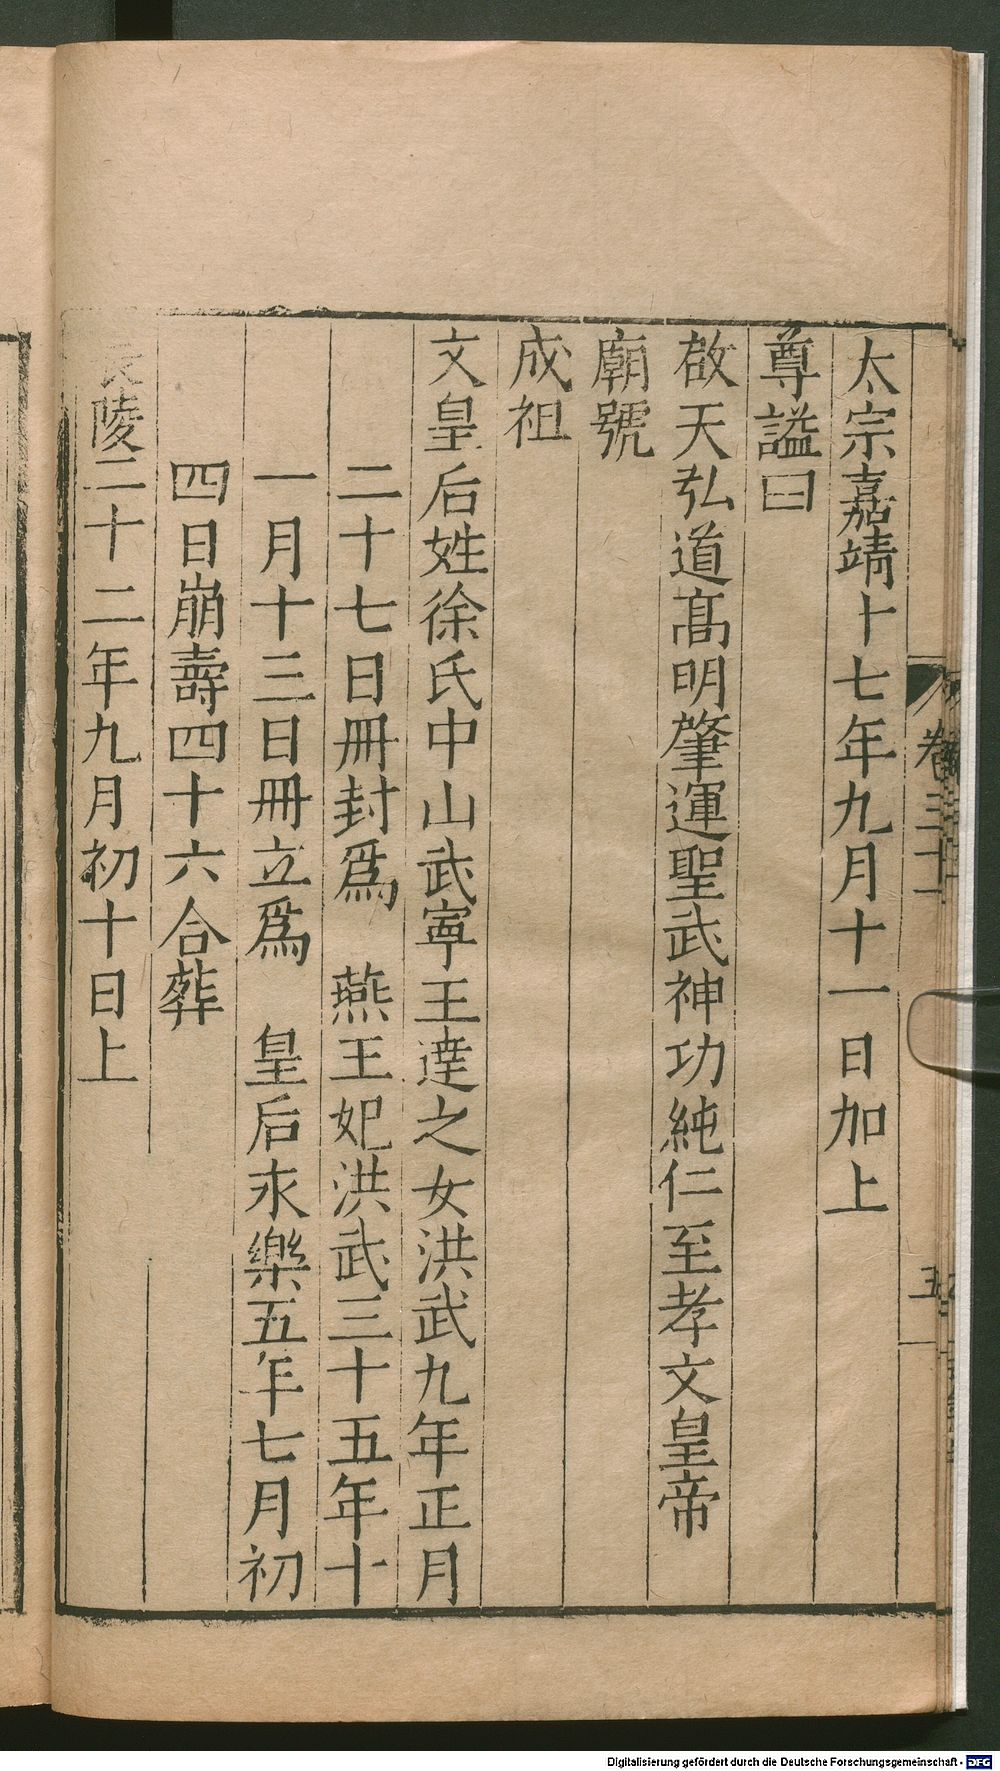 太宗嘉靖十七年九月十一日加上
尊謚曰
啟天弘道高明肇運聖武神功純仁至孝文皇帝
廟號
成祖
文皇后姓徐氏中山武寧王達之女洪武九年正月
二十七日冊封爲　燕王妃洪武三十五年十
一月十三日冊立爲　皇后永樂五年七月初
四日崩壽四十六合葬
長陵二十二年九月初十日上
卷三十一
五
Digitalisierung gefördert durch die Deutsche Forschungsgemeinschaft - DFG